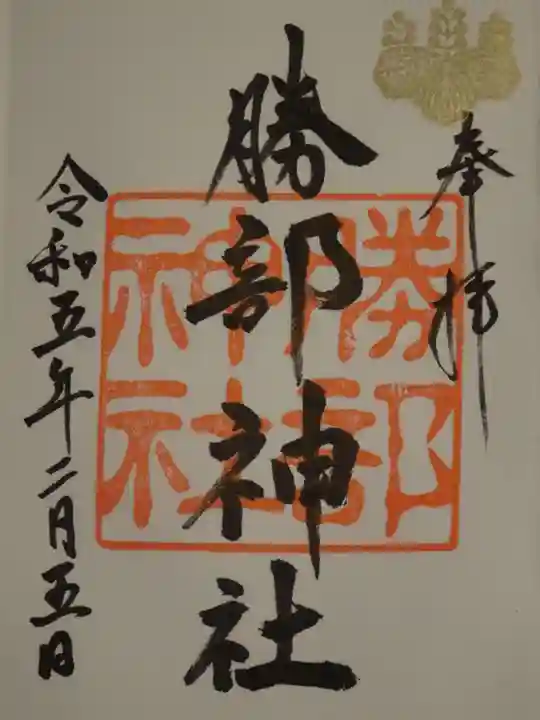 奉拝
勝部神社
勝部
神社
令和五年二月五日